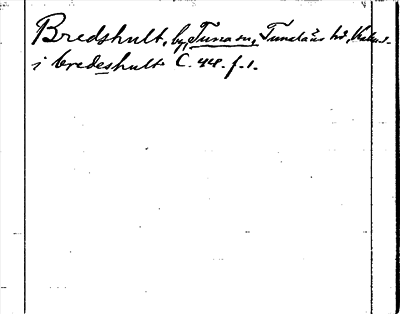 Bredshult, by, Tuna sn, Tunaläns hd, Kalm.
i bredeshult C. 44. f. 1.